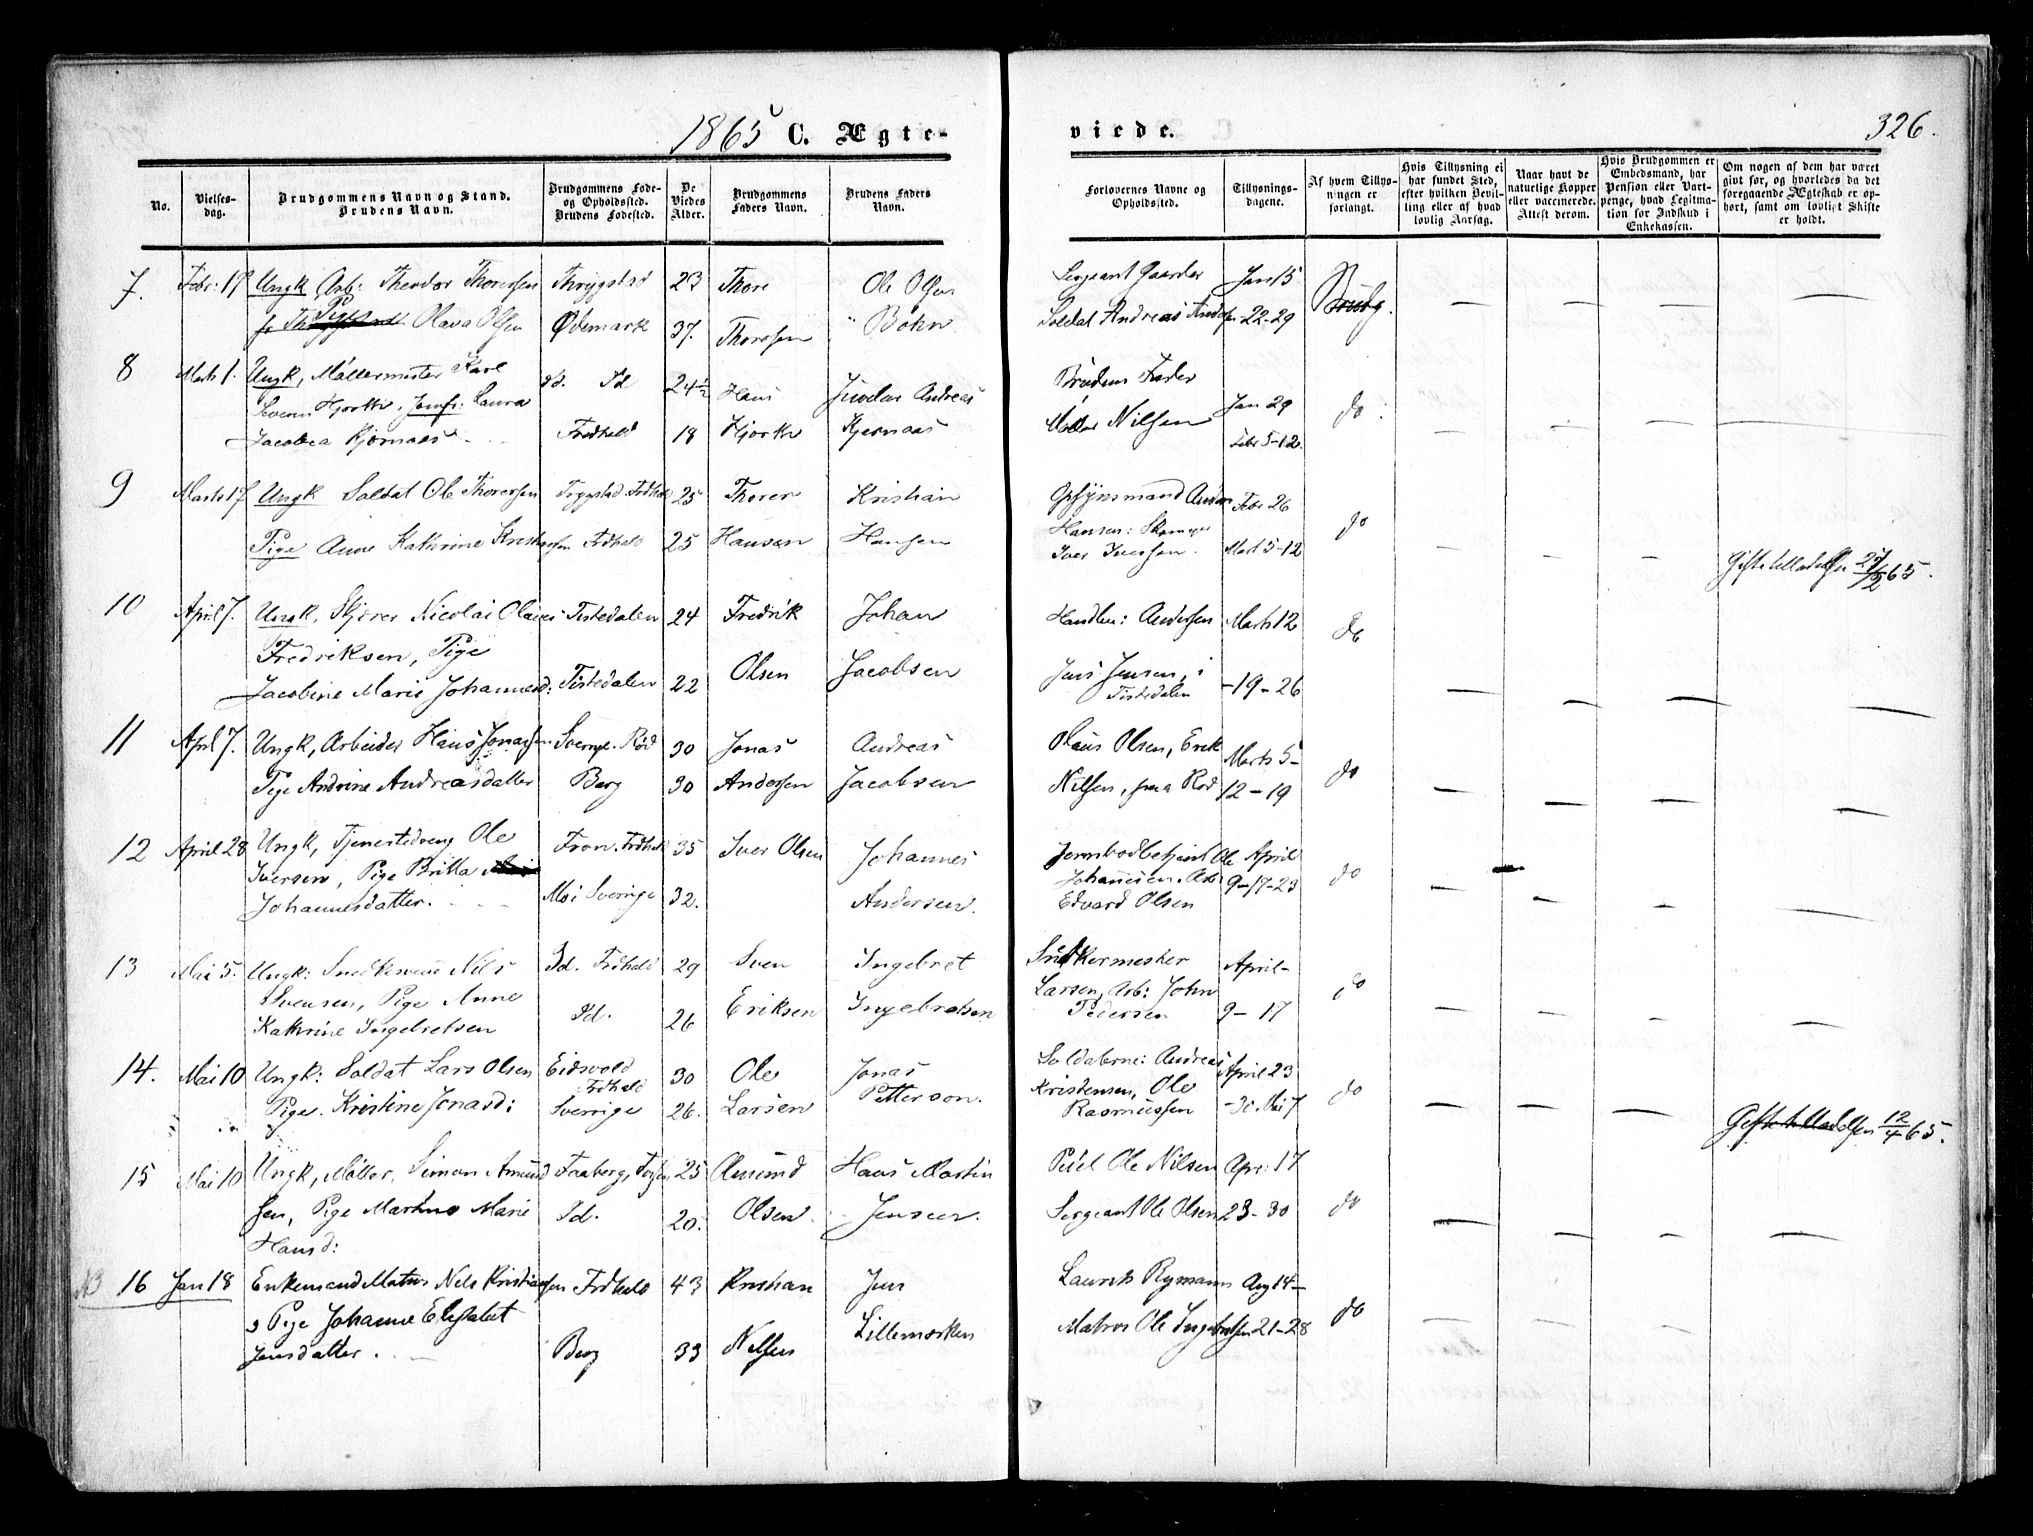 1865 C. Ægte-
viede.
326.
No.
Vielses-
dag.
Brudgommens Navn og Stand.
Brudens Navn.
Brudgommens Føde-
og Opholdssted.
Brudens Fødested.
De
Viedes
Alder.
Brudgommens
Faders Navn.
Brudens Faders
Navn.
Forlovernes Navne og
Opholdssted.
Tillysnings-
dagene.
Af hvem Tillys-
ningen er
forlangt.
Hvis Tillysning ei
har fundet Sted,
efter hvilken Bevil-
ling eller af hvad
lovlig Aarsag.
Naar havt de
naturlige Kopper
eller vaccinerede.
Attest derom.
Hvis Brudgommen er
Embedsmand, har
Pension eller Vart-
penge, hvad Legitima-
tion for Indskud i
Enkekassen.
Om nogen af dem har været
givt før, og hvorledes da det
foregaaende Ægteskab er op-
hørt, samt om lovligt Skifte
er holdt.
7. Febr: 19 Ungk Arb: Theodor Thoresen Thrygstad 23 Thore Ole Olsen Sergeant Gaarder Jan 15 Brudg.
Pige Olava Olsen Ødemark 37. Thoresen Bøhn Soldat Andreas -22-29
8 Marts 1. Ungk, Møllermester Karl Id. Id 24½ Hans Andreas Brudens Fader Jan 29 do
Severin Hjorth, Jomfr: Laura
Jacobea Kjørnaas Frdhald 18 Hjorth Kjernaas Møller Nilsen Febr 5-12.
9 Marts 17 Ungk Soldat Ole Thoresen Trygstad Frdhald 25 Thorer Kristian Opsynsmand Febr 26 do
Hansen:
Pige Anne Kathrine Frdhald 25 Hansen Hansen Iver Iversen. Marts 5-12
10 April 7. Ungk, Skjærer Nicolai Olaus Tistedalen 24 Fredrik Johan Handlen: Andersen Marts 12 do
Fredriksen, Pige
Jacobine Marie Johannesd: Tistedalen 22 Olsen Jacobsen Jens Jensen, i -19-26
Tistedalen
11 April 7. Ungk, Arbeider Hans Jonassen Rød 30 Jonas Andreas Olaus Olsen, Erik Marts 5- do
Pige Andrine Andreasdatter Berg 30 Andersen Jacobsen Nilsen, Rød 12-19
12 April 28 Ungk, Tjenestedreng Ole Fron. Frdhald 35 Iver Olsen Johannes Ole April do
Iversen, Pige Britta Johannesen. Arb: 9-17-23
Johannesdatter. Sverrige 32. Andersen. Edvard Olsen
13 Mai 5. Ungk: Snedkersvend Nils Id. Frdhald 29 Sven Ingebret Snedkermester April- do
Svensen, Pige Anne Larsen, Arb: John
Kathrine Ingebretsen Id. 26 Eriksen Ingebretsen Pedersen 9-17
14. Mai 10 Ungk: Soldat Lars Olsen Eidsvold 30 Ole Jonas Soldaterne: Andreas April 23 do
Frdhald Kristensen, Ole
Pige. Kristine Jonasd: Sverrige 26. Larsen Petterson. Rasmussen -30 Mai 7
15 Mai 10 Ungk, Møller, Simon Amund Faaberg, 25 Amund Hans Martin Ole Nilsen Apr: 17 do
sen, Pige Marthine Marie Id. 20. Olsen Jensen. Sergeant Ole Olsen 23-30
Hansd:
16 Jan 18 Enkemand Matros Nils Kristiansen Frdhald 43 Kristian Jens Rymann Aug 14- do
Pige Johanne Elisabet Lillemarken Matros Ole Ingebretsen 21-28
Jensdatter. Berg 33 Nilsen